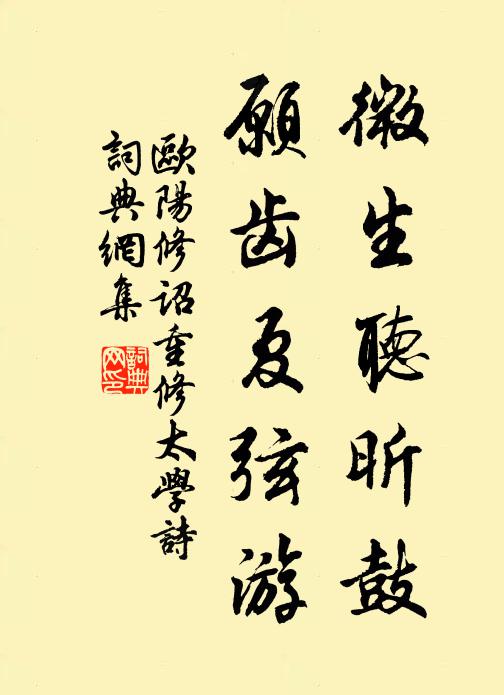 微生聽昕鼓
願齿夏弦游
歐陽修诏重修太學詩
詞典網集
詞典网印